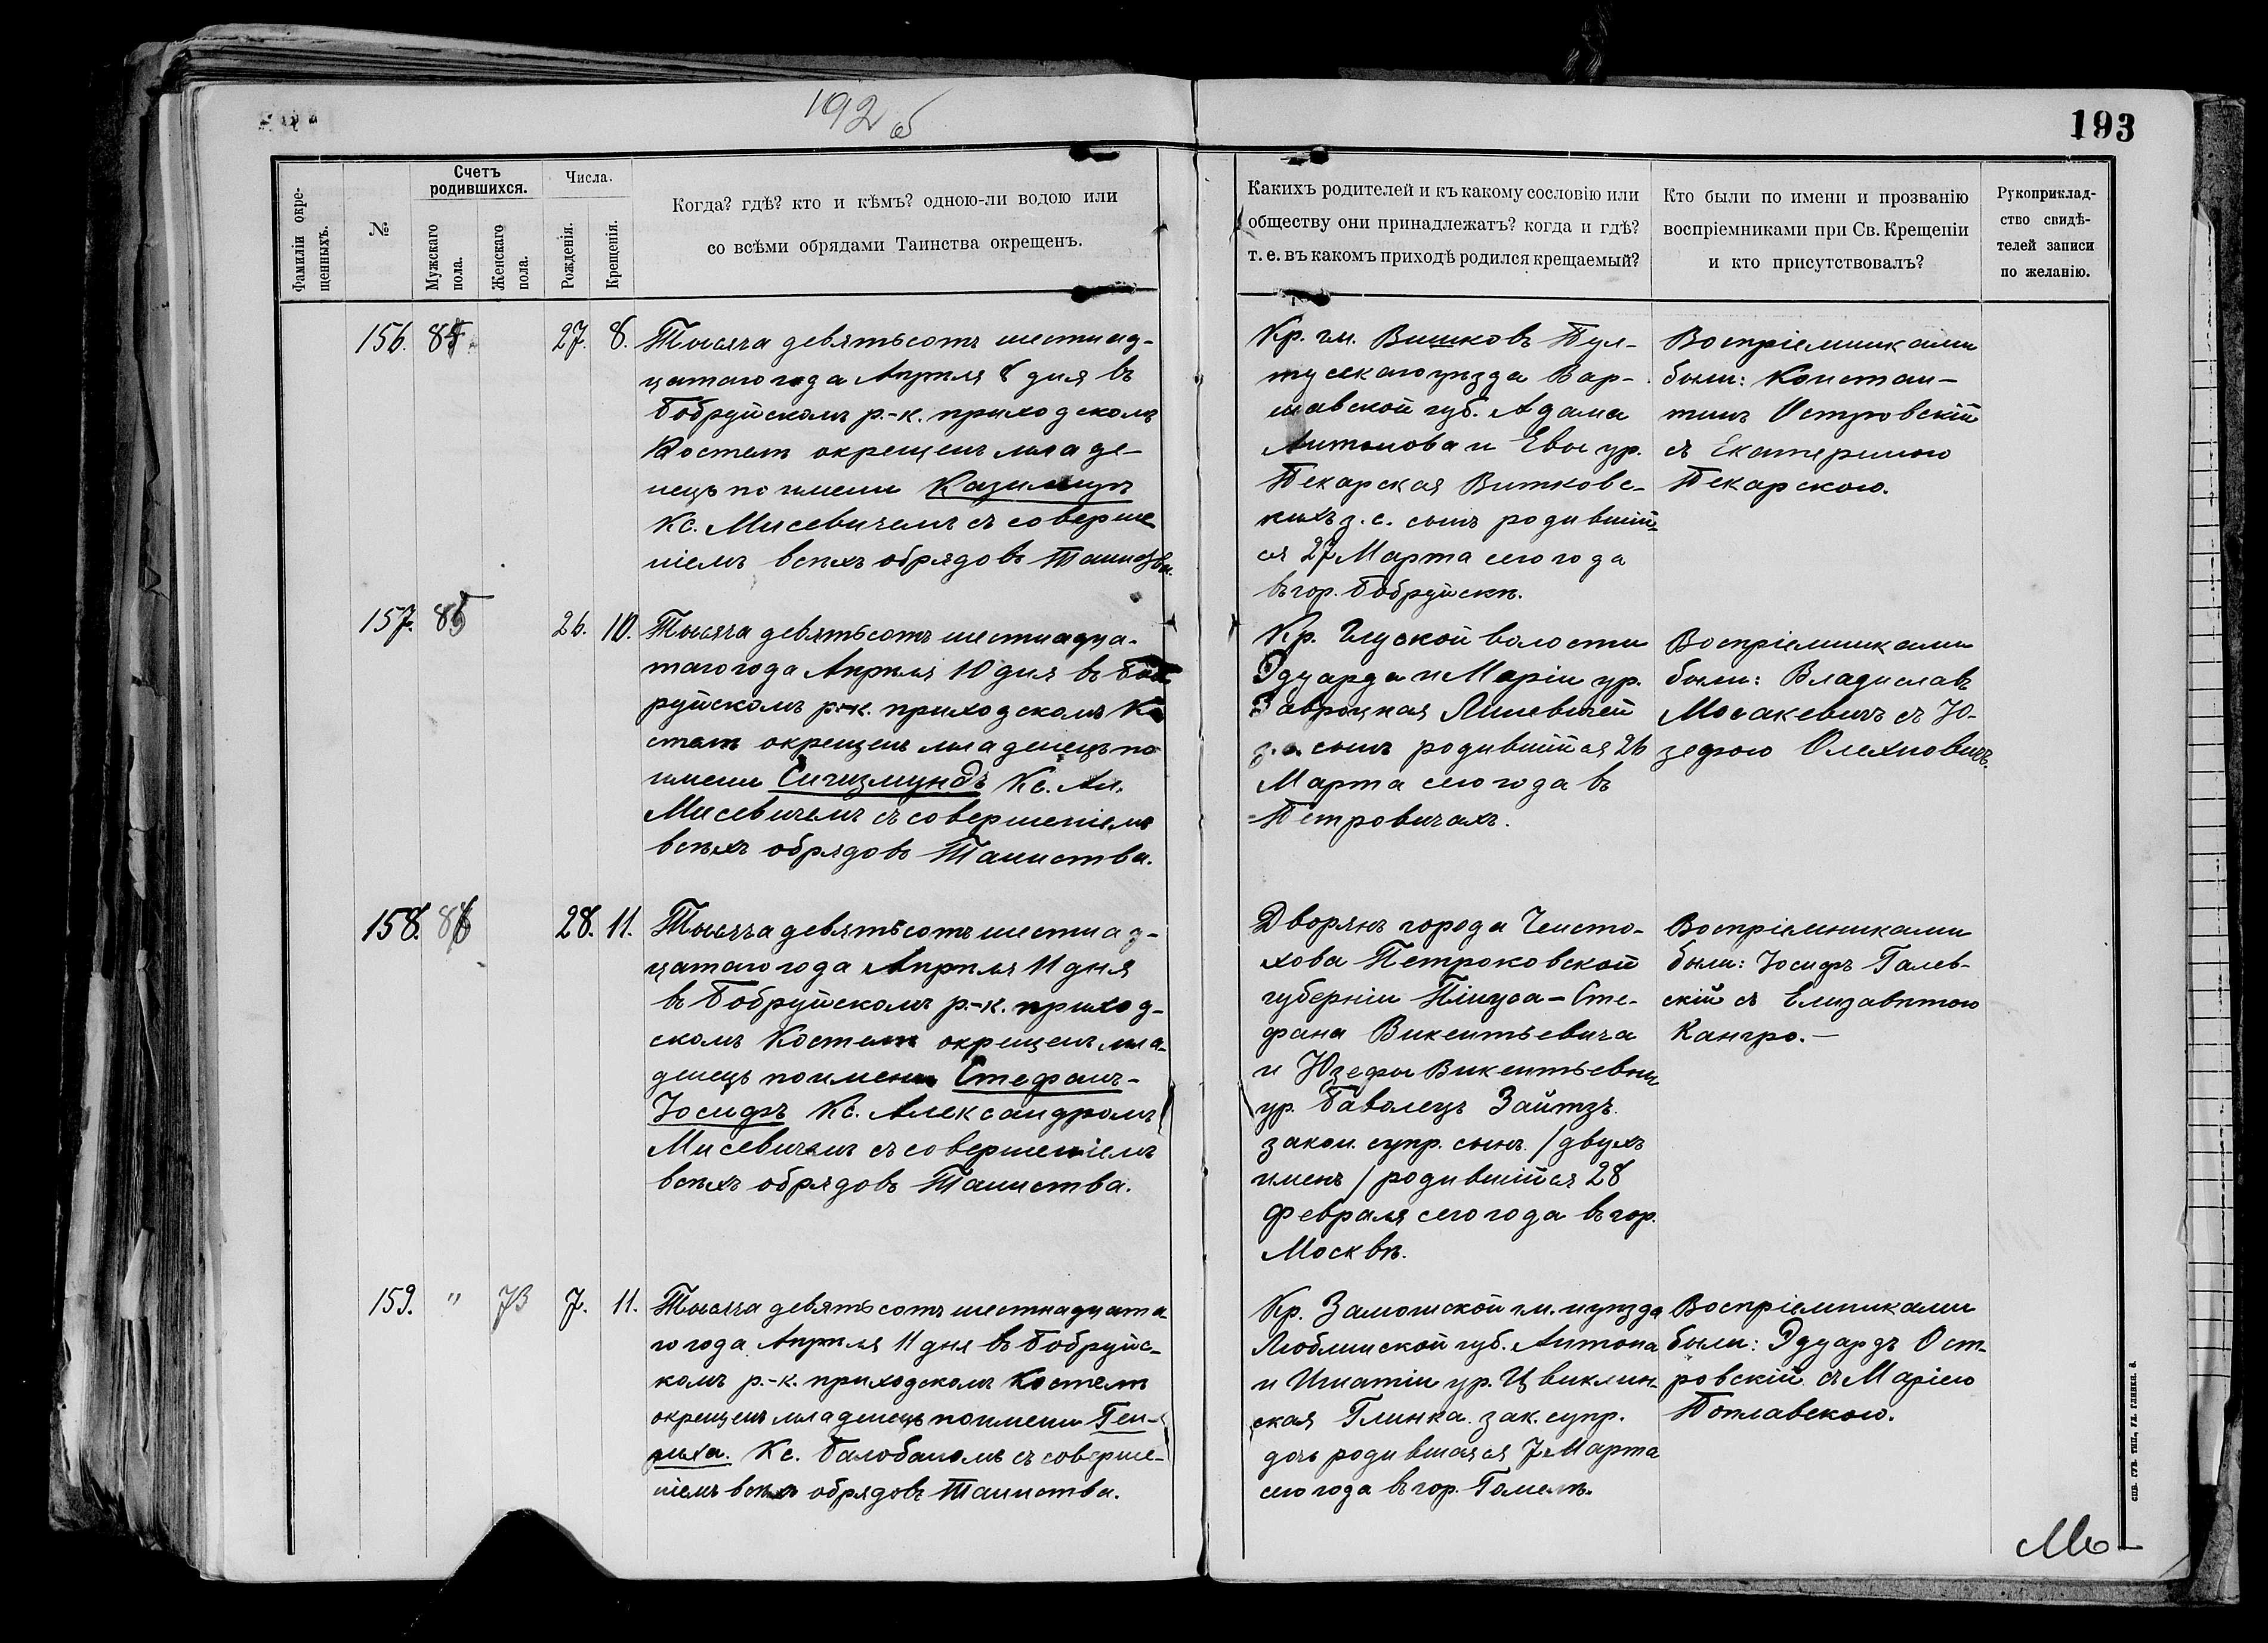 192 об
193
Фамиліи окре-
щенныхъ.
№
Счетъ
родившихся.
Мужскаго
пола.
Женскаго
пола.
Числа.
Рожденія.
Крещенія.
Когда? гдѣ? кто и кѣмъ? одною-ли водою или
со всѣми обрядами Таинства окрещенъ.
Какихъ родителей и къ какому сословію или
обществу они принадлежатъ? когда и гдѣ?
т. е. въ какомъ приходѣ родился крещаемый?
Кто были по имени и прозванію
воспріемниками при Св. Крещеніи
и кто присутствовалъ?
Рукоприклад-
ство свидѣ-
телей записи
по желанію.
156. 27. 8.
Тысяча девятьсотъ шестнад-
цатаго года Апрѣля 8 дня въ
Бобруйскомъ р.-к. приходскомъ
Костелѣ окрещенъ младе-
нецъ по имени Казимиръ
Кс. Мисевичемъ съ соверше
ніемъ всѣхъ обрядовъ Таинства.
Кр. гм. Вишковъ Пул-
тускаго уѣзда Вар-
шавской губ. Адама
Антонова и Евы ур.
Пекарская Витковс-
кихъ з. с. сынъ родившій-
ся 27 Марта сего года
въ гор. Бобруйскѣ.
Воспріемниками
были: Констан-
тинъ Островскій
съ Екатериною
Пекарскою.
157. 26. 10.
Тысяча девятьсотъ шестнадца-
таго года Апрѣля 10 дня въ Боб
руйскомъ р.-к. приходскомъ Ко
стелѣ окрещенъ младенецъ по
имени Сигизмундъ Кс. Ал.
Мисевичемъ съ совершеніемъ
всѣхъ обрядовъ Таинства.
Кр. Глуской волости
Эдуарда и Маріи ур.
з. с. сынъ родившійся 26
Марта сего года въ
Петровичахъ.
Воспріемниками
были: Владиславъ
Мосакевичъ съ Ю-
зефою Олехновичъ.
158. 28. 11.
Тысяча девятьсотъ шестнад-
цатаго года Апрѣля 11 дня
въ Бобруйскомъ р.-к. приход-
скомъ Костелѣ окрещенъ мла-
денецъ по имени Стефанъ-
Іосифъ Кс. Александромъ
Мисевичемъ съ совершеніемъ
всѣхъ обрядовъ Таинства.
Дворянъ города Ченсто-
хова Петроковской
губерніи Піуса-Сте-
фана Викентьевича
и Юзефы Викентьевны
ур. Баволецъ Зайтзъ
закон. супр. сынъ /двухъ
именъ/ родившійся 28
Февраля сего года въ гор.
Москвѣ.
Воспріемниками
были: Іосифъ Галев-
скій съ Елизаветою
Кангро.—
159. " 73 7. 11.
Тысяча девятьсотъ шестнадцата-
го года Апрѣля 11 дня въ Бобруйс-
комъ р.-к. приходскомъ Костелѣ
окрещенъ младенецъ по имени Ген-
риха. Кс. Балобаномъ съ соверше-
ніемъ всѣхъ обрядовъ Таинства.
Кр. Замошской гм. и уѣзда
Люблинской губ. Антона
и Игнатіи ур. Цвиклин-
ская Глинка зак. супр.
дочь родившаяся 7 Марта
сего года въ гор. Гомелѣ.
Воспріемниками
были: Эдуардъ Ост-
ровскій съ Маріею
Поплавскою.